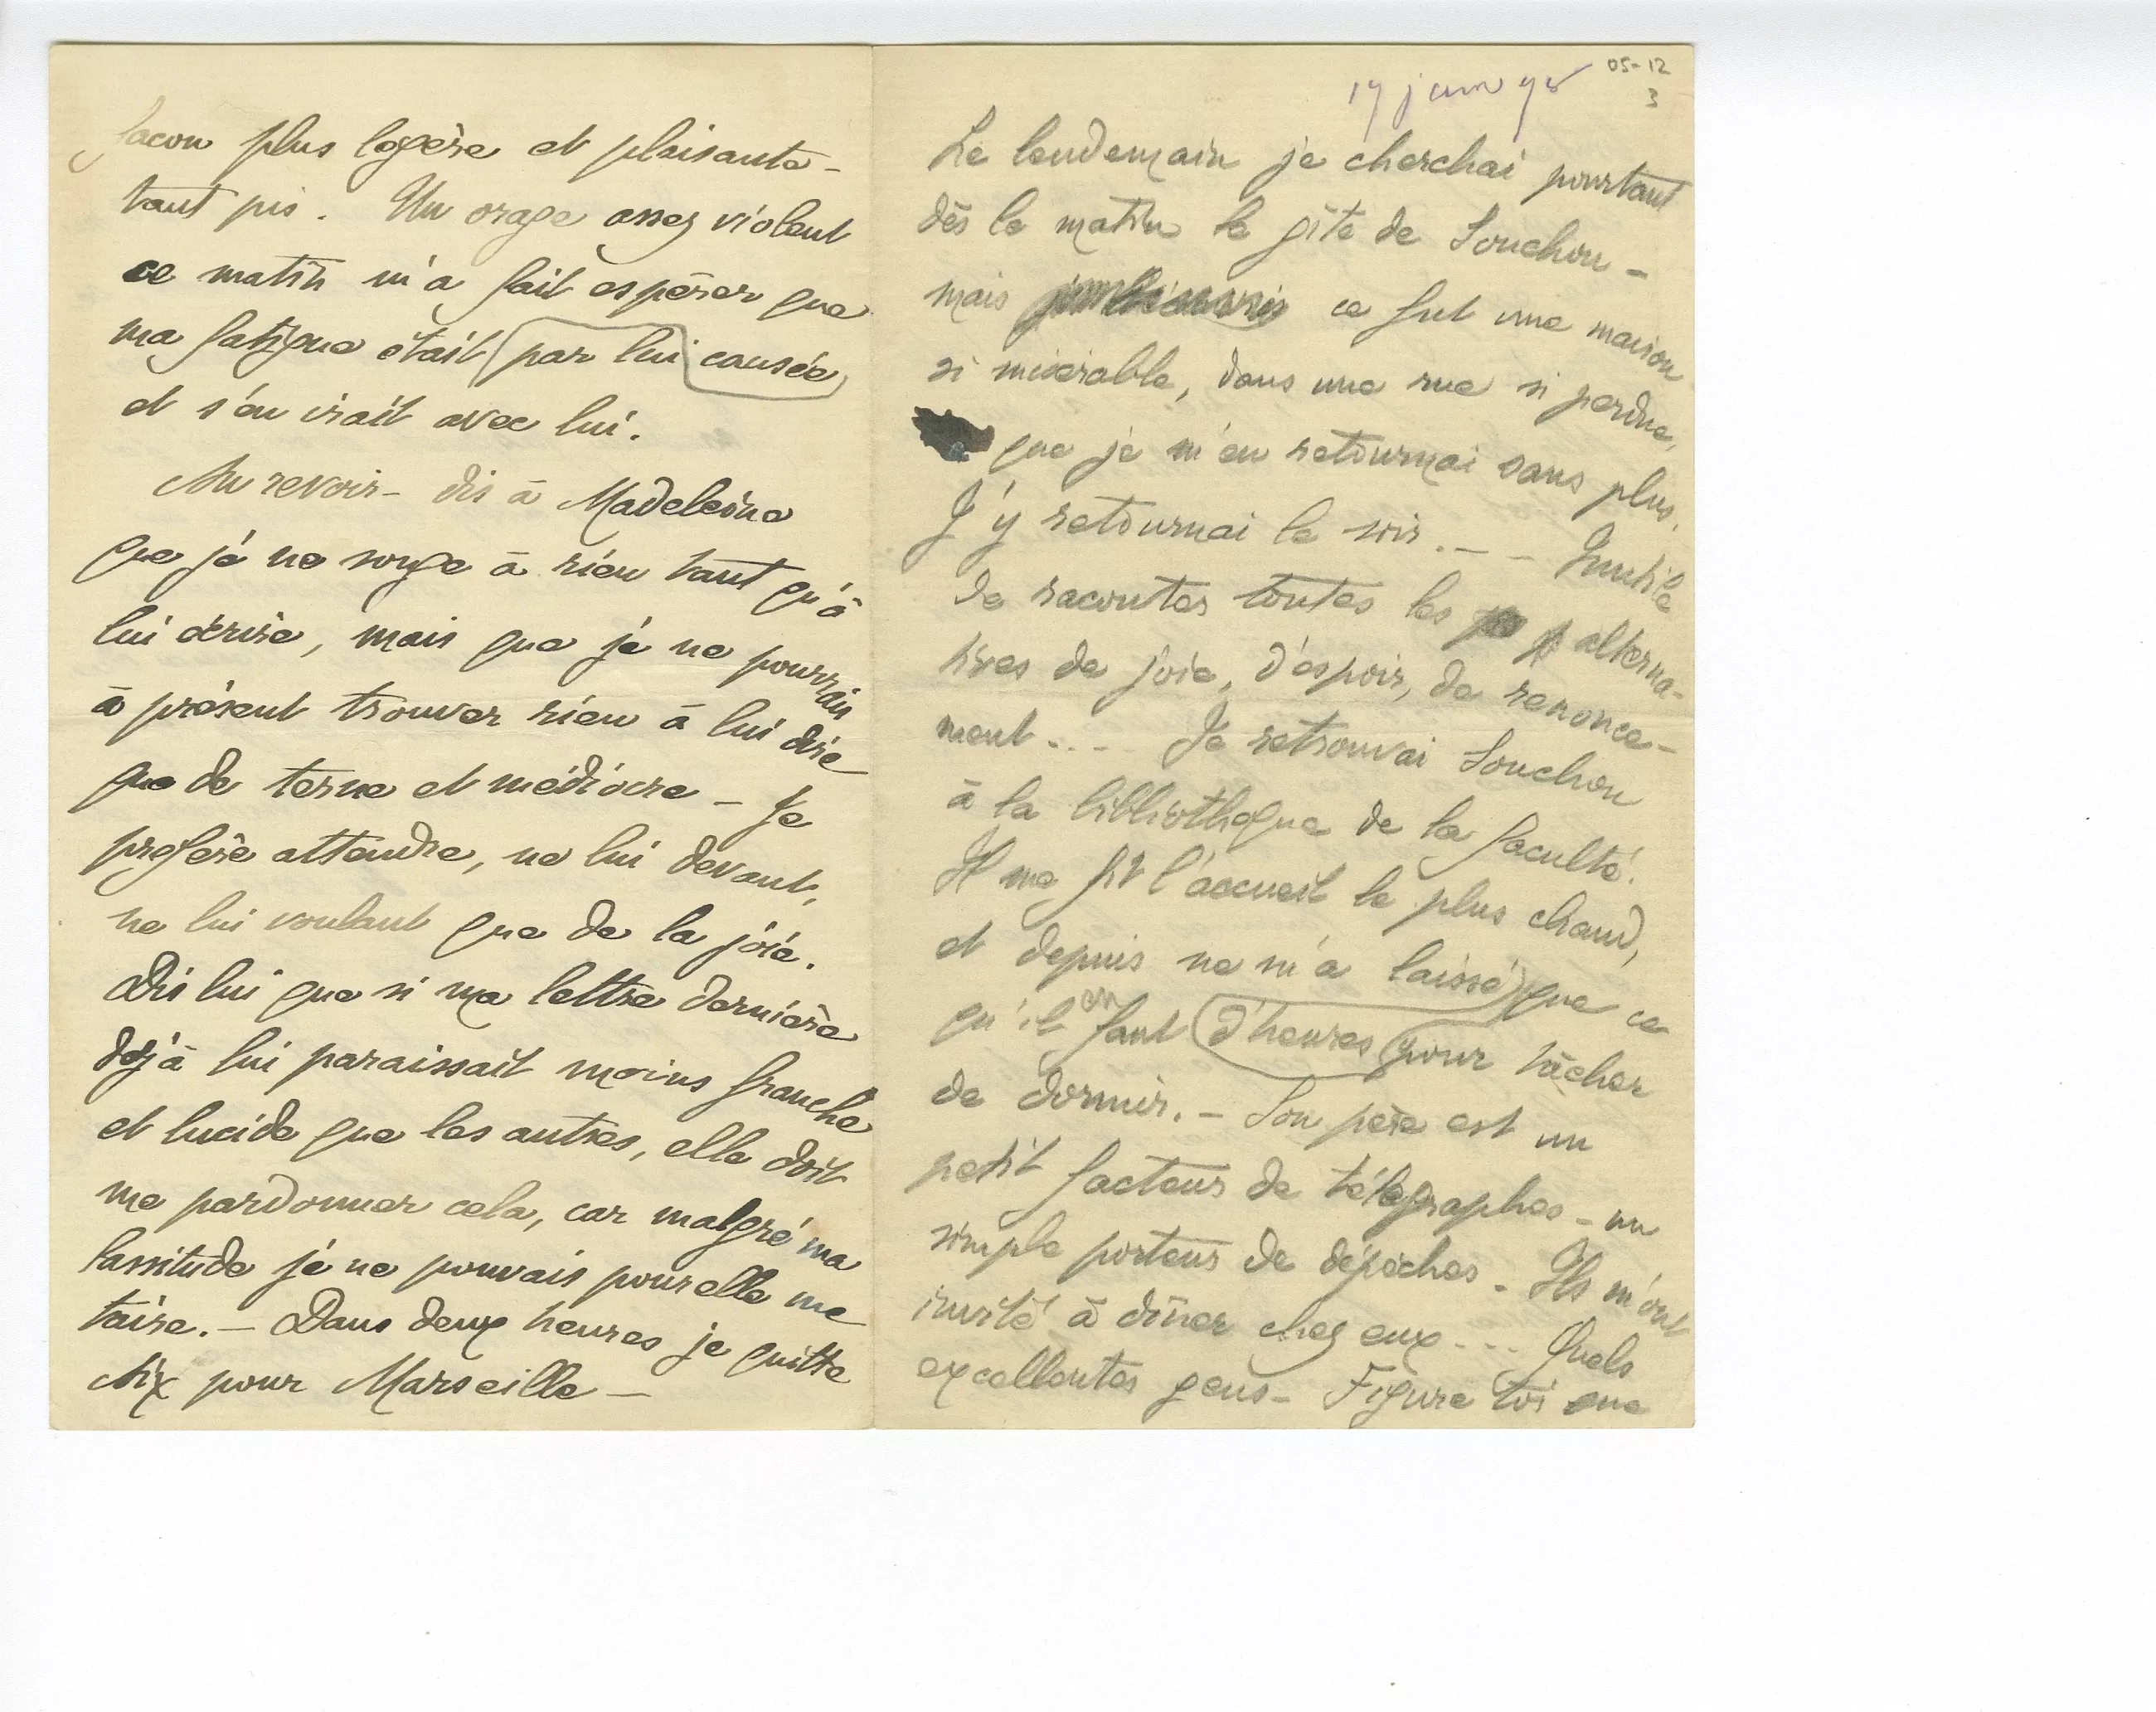 façon plus legère et plaisante -
tant pis. Un orage assez violent
ce matin m'a fait espérer que
ma fatigue était par lui causée
et s'en irait avec lui.
Au revoir - dis à Madeleine
que je ne songe à rien tant qu'à
lui écrire, mais que je ne pourrais
à présent trouver rien à lui dire
que de terne et médiocre - Je
prefère attendre, ne lui devant,
ne lui voulant que de la joie.
Dis lui que si ma lettre dernière
déjà lui paraissait moins franche
et lucide que les autres, elle doit
me pardonner cela, car malgré ma
lassitude je ne pouvais pour elle me
taire. - Dans deux heures je quitte
Aix pour Marseille -
05-12
3
Le lendemain je cherchai pourtant
dès le matin le gîte de Souchon -
mais ce fut une maison
si miserable, dans une rue si perdue,
que je m'en retournai sans plus.
J'y retournai le soir. - - Inutile
de raconter toutes les alterna-
tives de joie, d'espoir, de renonce-
ment .... Je retrouvai Souchon
à la bibliotheque de la faculté.
Il me fit l'accueil le plus chaud,
et depuis ne m'a laissé que ce
qu'il en faut d'heures pour tâcher
de dormir. - Son père est un
petit facteur de télegraphes - un
simple porteur de dépêches - Ils m'ont
invité à dîner chez eux ... Quels
excellentes gens - Figure toi que